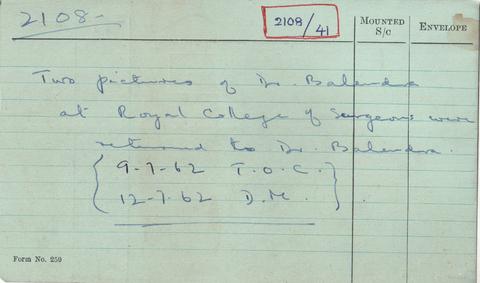 2108-
2108/41
MOUNTED S/C
ENVELOPE
Two pictures of Dr. Balendra
at Royal College of Surgeons were
returned to Dr. Balendra.
9-7-62 T.O.C.
12-7-62 D.M.
Form No. 259